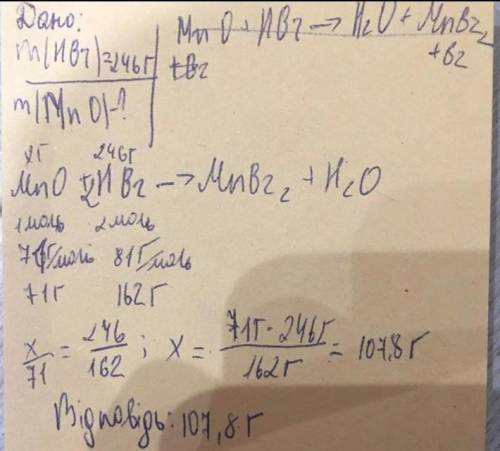 Дано:
m(HBr)=246г
m(MnO)-?
MnO + HBr → H2O + MnBr2
+Br
xг 246г
MnO + 2HBr → MnBr2 + H2O
1моль 2моль
71г/моль 81г/моль
71г 162г
x/71 = 246/162; X = 71г · 246г/162г = 107,8г
Відповідь: 107,8г